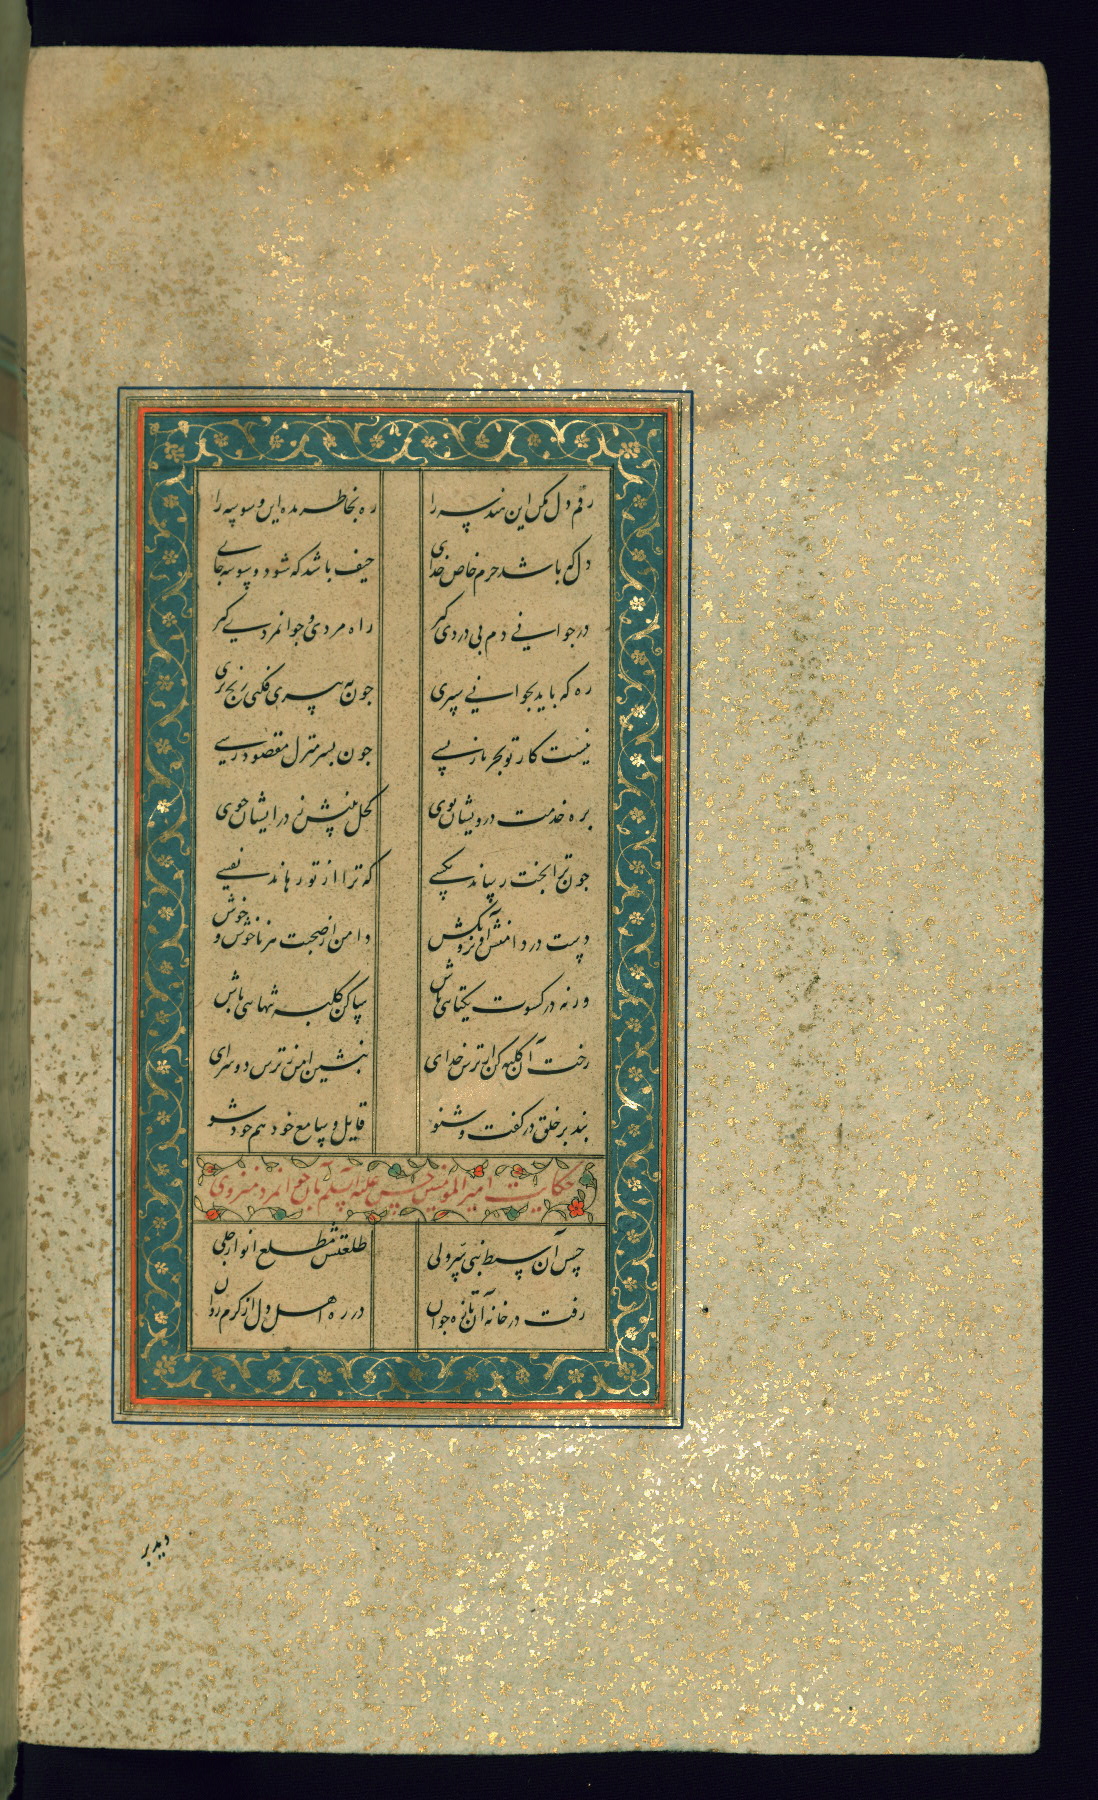 رقم دل مکن این هندسه را ره بخاطر مده این وسوسه را
دل که باشد حرم خاص خدای حیف باشد که شود وسوسه جای
در جوانی دم بی دردی کیر راه مردی و جوانمردی کیر
ره که باید بجوانی سپری چون به پیری فکنی رنج بری
نیست کار تو بجز بازپسی چون بسر منزل مقصود رسی
بره خدمت درویشان پوی کحل بینش ز در ایشان جوی
چون ترا بخت رساند بکسی که ترا از تو رهاند نفسی
دست در دامنش آویز و بکش دامن از صحبت هر ناخوش و خوش
ورنه در کسوت یکتایی باش ساکن کلبه تنهایی باش
رخت آن کلبه کن از ترس خدای بنشین امن ز ترس دو سرای
بند بر خلق در کفت و شنو قایل و سامع خود هم خود شو
حکایت امیر المومنین حسن علیه السلم با آن جوانمرد منزوی
حسن آن سبط نبی سر ولی طلعتش مطلع انوار جلی
رفت در خانه آن تازه جوان در ره اهل دل از کرم روان
دید بر